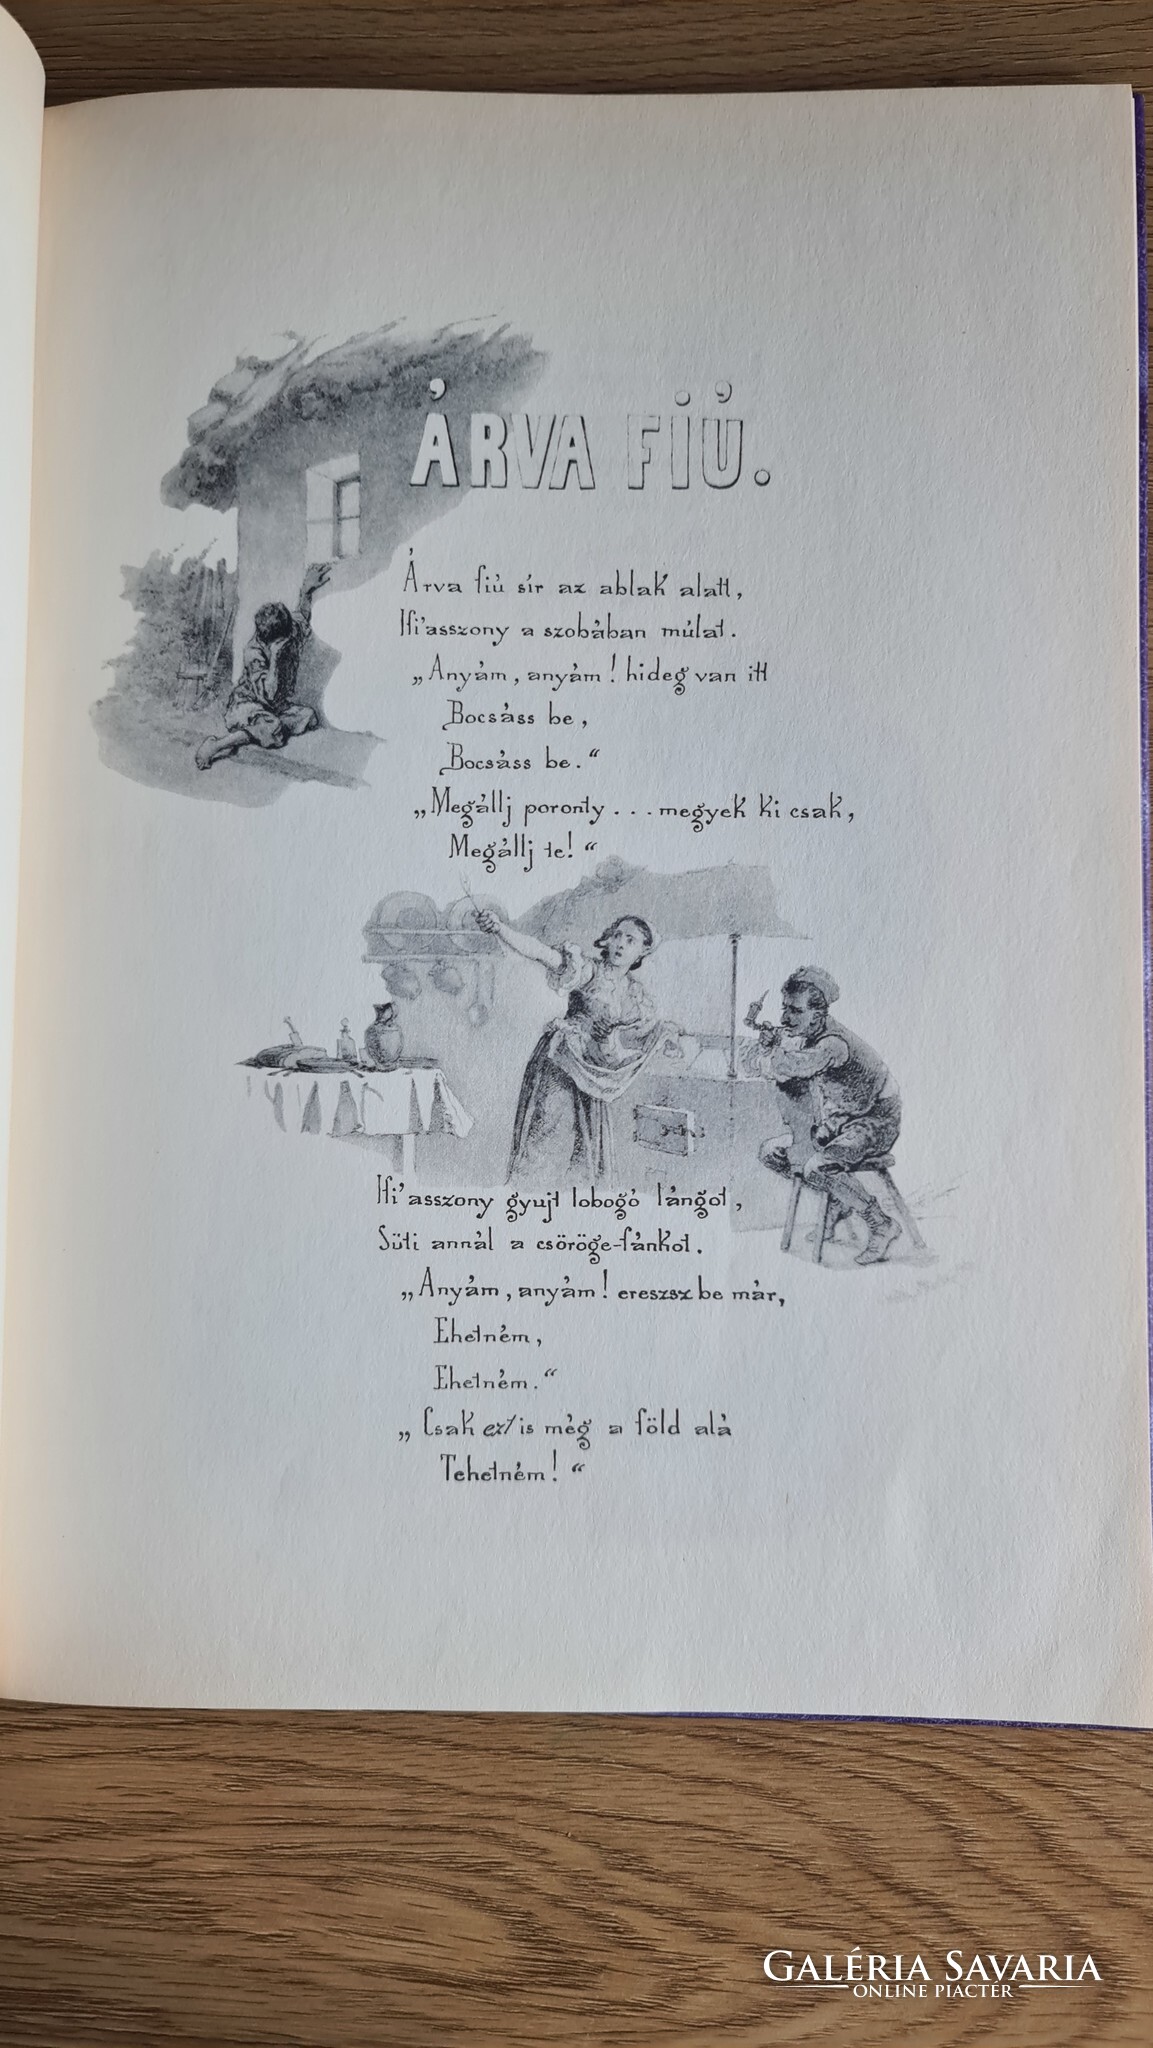 ÁRVA FIÚ.
Árva fiú sír az ablak alatt,
Ifi'asszony a szobában múlat.
„Anyám, anyám! hideg van itt
Bocsáss be,
Bocsáss be.“
„Megállj poronty... megyek ki csak,
Megállj te!“
Ifi'asszony gyujt lobogó lángot,
Süti annál a csöröge-fánkot.
„Anyám, anyám! ereszsz be már,
Ehetném,
Ehetném.“
„Csak ezt is még a föld alá
Tehetném!“
GALÉRIA SAVARIA
ONLINE PIACTÉR